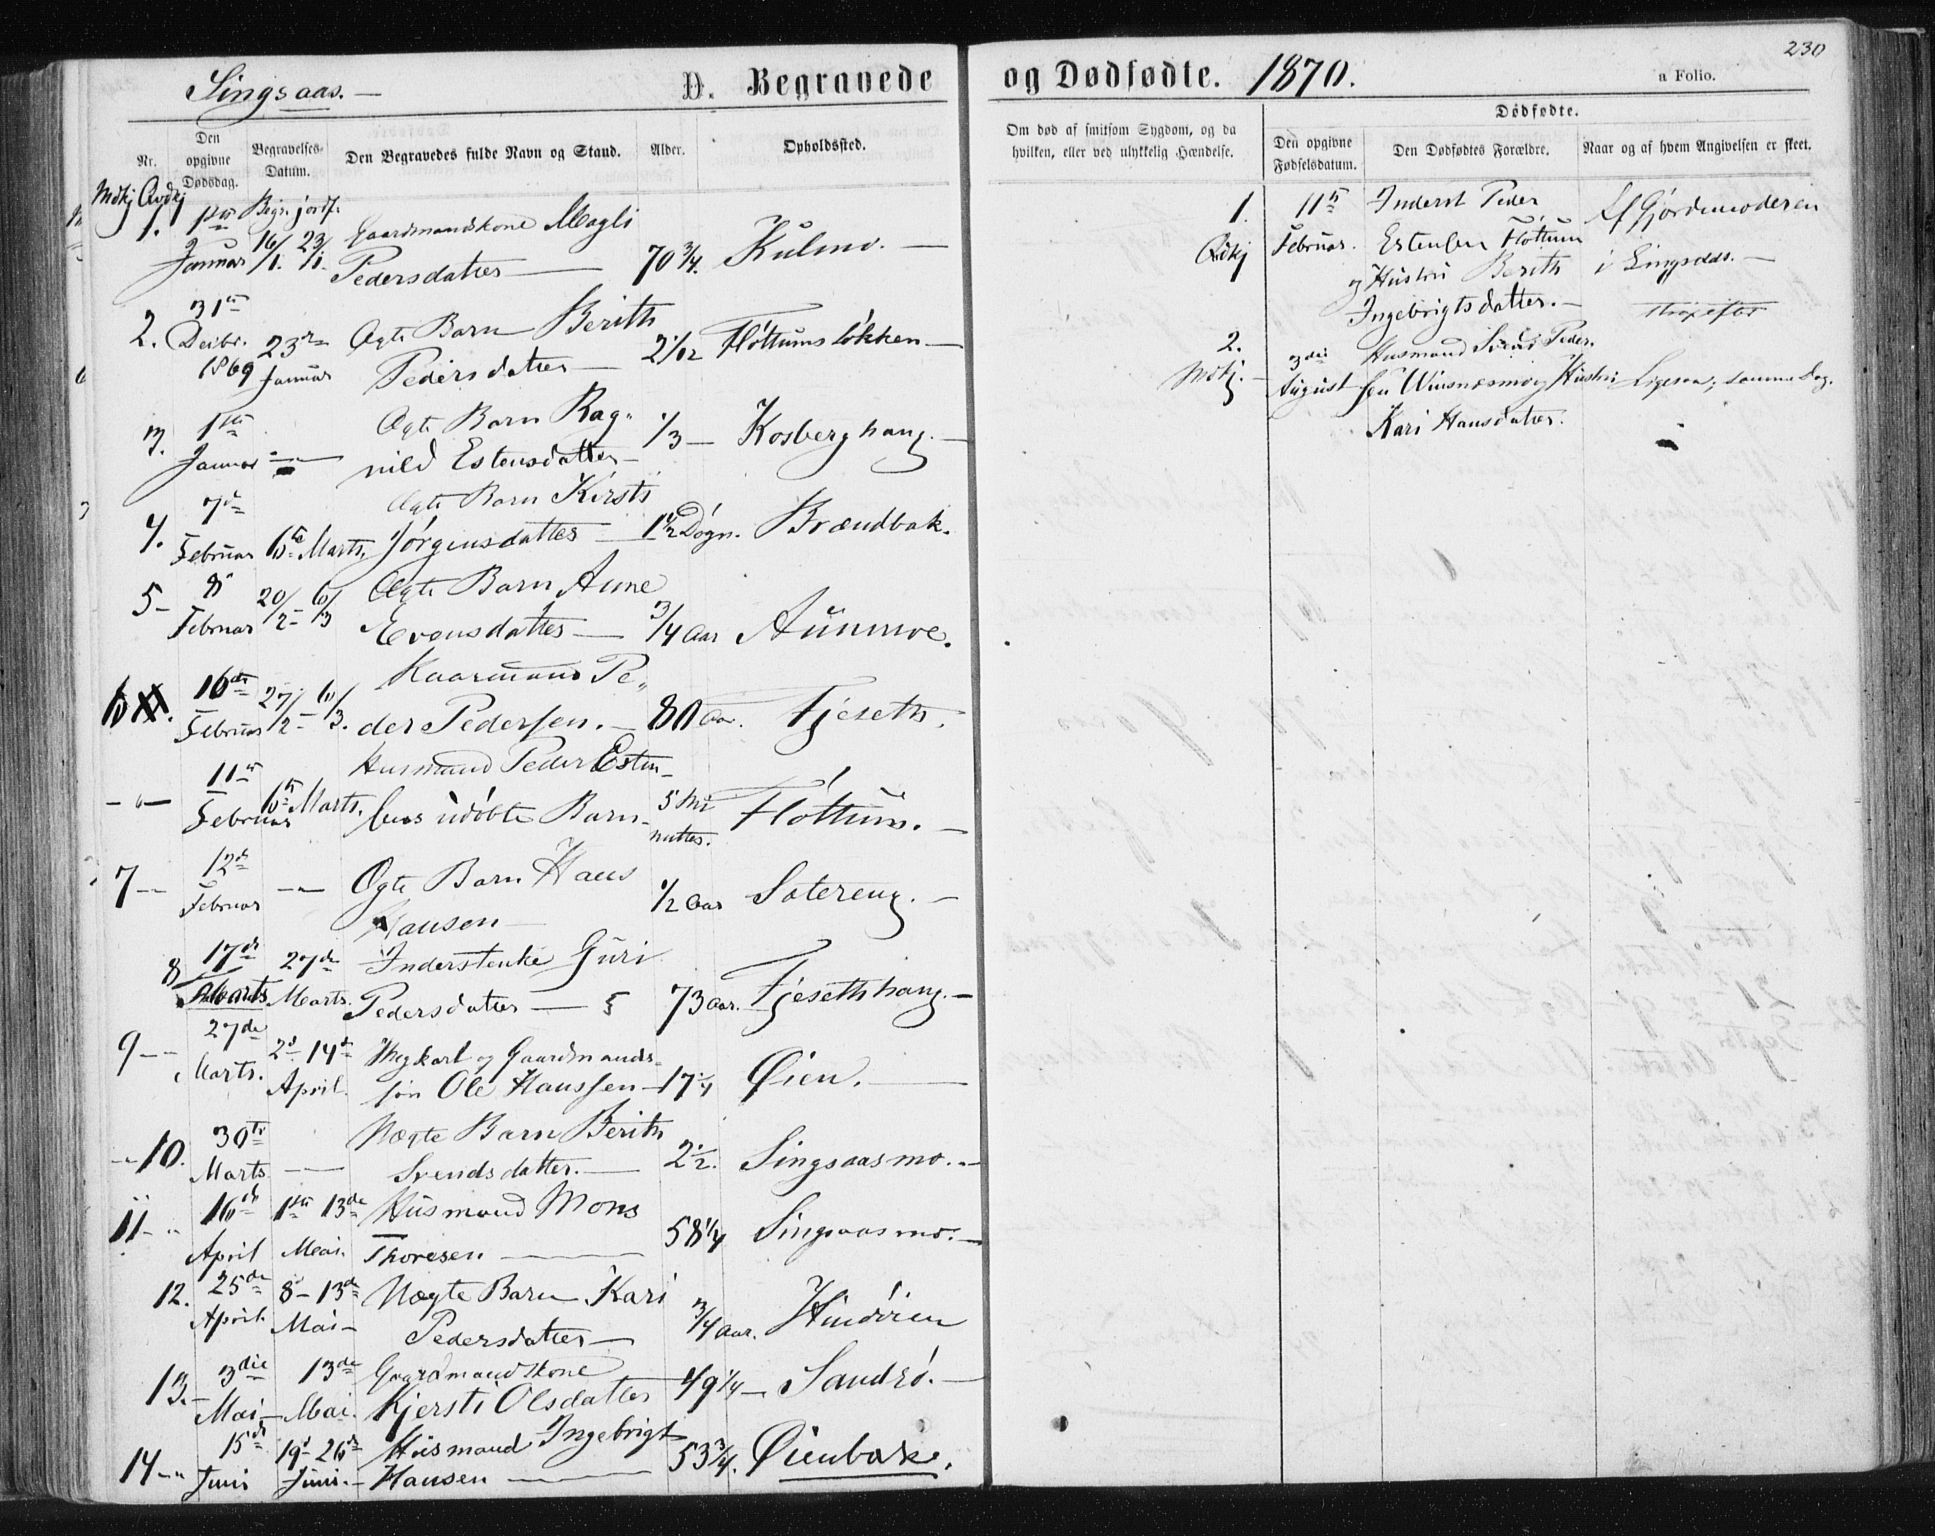 Singsaas. —
D. Begravede
Nr.
Den opgivne Dødsdag.
Begravelses-Datum.
Den Begravedes fulde Navn og Stand.
Alder.
Opholdssted.
Mdkj Qvdkj
1. 1ste Januar 16/1. 23/1. Begr. jordf. Gaardmandskone Magli
Pedersdatter — 70 3/4. Kulmo. —
2. 31te Decbr. 1869 23de Januar Ægte Barn Berith
Pedersdatter — 2 1/12 Fløttumsløkken —
3. 1ste Januar — " — Ægte Barn Rag-
nild Estensdatter — 1/3 — Kosberghaug. —
4. 7de Februar 6te Marts. Ægte Barn Kirsti
Jörgensdatter — 1 1/2 Døgn. Brændbak.
5 — 8 Februar 20/2 — 6/3 Ægte Barn Anne
Evensdatter — 3/4 Aar Aunmoe.
6. 16de Februar 27/2 — 6/3. Kaarmand Pe-
der Pedersen. — 80 Aar. Fjeseth.
— " — 11te Februar 6te Marts. Husmand Peder Esten-
sens udøbte Barn — 5 Mi-
nutter. Fløttum. —
7 — 12te Februar — " — Ægte Barn Hans
Hansen — 1/2 Aar Sætereng. —
8 17de Marts 27de Marts. Inderstenke Guri
Pedersdatter — 73 Aar. Fjesethhaug. —
9 — 27de Marts. 2d — 14de April. Ungkarl og Gaardmands-
søn Ole Hanssen — 17 1/4 Øien. —
10. 30te Marts — " — Uægte Barn Berith
Svendsdatter. — 2 1/2. Singsaasmo. —
11 — 16de April 1ste 13de Mai. Husmand Mons
Thoresen — 58 1/4 Singsaasmo. —
12. 25de April. 8 — 13de Mai — Uægte Barn Kari
Pedersdatter — 3/4 Aar.
13. — 3die Mai — 13de Mai. Gaardmandskone
Kjersti Olsdatter 49 1/4 — Sandrö. —
14 — 15de Juni 19d — 26de Juni. — Husmand Ingebrigt
Hansen — 53 3/4. Øienbake.
og Dødfødte. 1870.
a Folio.
230
Om død af smitsom Sygdom, og da
hvilken, eller ved ulykkelig Hændelse.
Dødfødte.
Den opgivne Fødselsdatum.
Den Dødfødtes Forældre.
Naar og af hvem Angivelsen er skeet.
1. Qdkj 11te Februar. Inderst Peder
Estensen Fløttum
og Hustru Berith
Ingebrigtsdatter. —
Af Gjordemoderen
i Singsaas. —
2. Mdkj. — 3die August Husmand Svend Peder-
sen Winsnesmo og Hustru Ligesaa, samme Dag.
Kari Hansdatter.